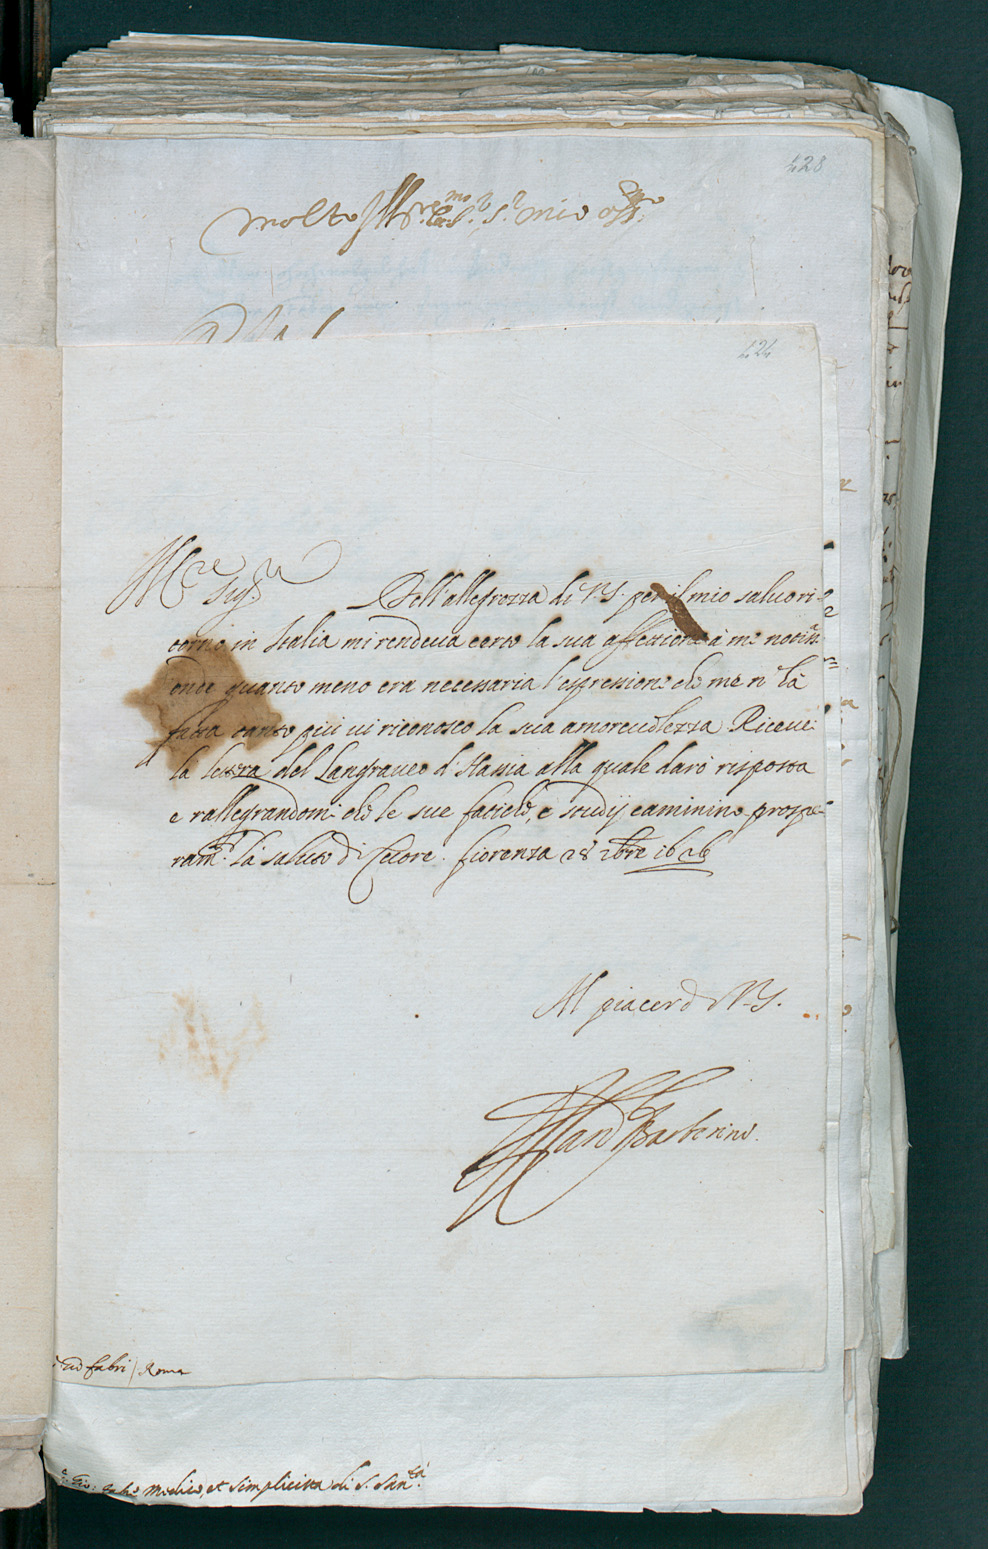 428
Molto Ill.re S.r mio oss.mo
424
Ill.re Sig.re
Dell'allegrezza di V.S. per il mio salvo ri=
torno in Italia mi rendeva certo la sua affettione à me notiss.a
onde quanto meno era necessaria l'espressione che me n'hà
fatta tanto più vi riconosco la sua amorevolezza Ricevei
la lettera del Langravio d'Hassia alla quale darò risposta
e rallegrandomi che le sue fatiche, e studij caminino prospe=
ram.te la saluto di Cuore. fiorenza 28 xbre 1626
Al piacer di V.S.
Il Card Barberino.
fabri / Roma
Medico, et simplicista di S. San.tà